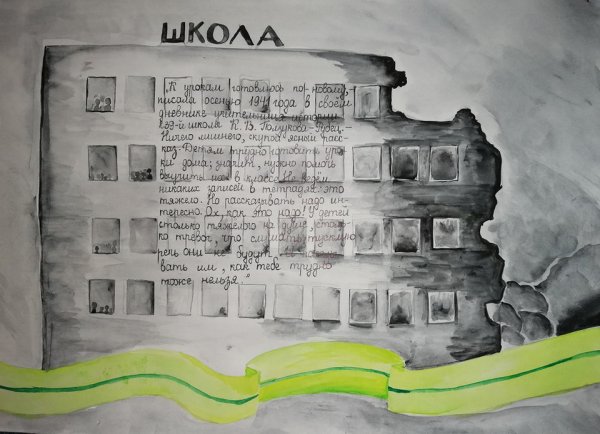 ШКОЛА
"К урокам готовлюсь по-новому,-
писала осенью 1941 года в своём
дневнике учительница истории
239-й школы К. В. Ползикова-Рубец.-
Ничего лишнего, скупой ясный расс-
каз. Детям трудно готовить уро-
ки дома; значит, нужно помочь
выучить их в классе. Не ведём
никаких записей в тетрадях: это
тяжело. Но рассказывать надо ин-
тересно. Ох, как это надо! У детей
столько тяжёлого на душе, столь-
ко тревог, что слушать тусклую
речь они не будут. И показы-
вать им, как тебе трудно
тоже нельзя."